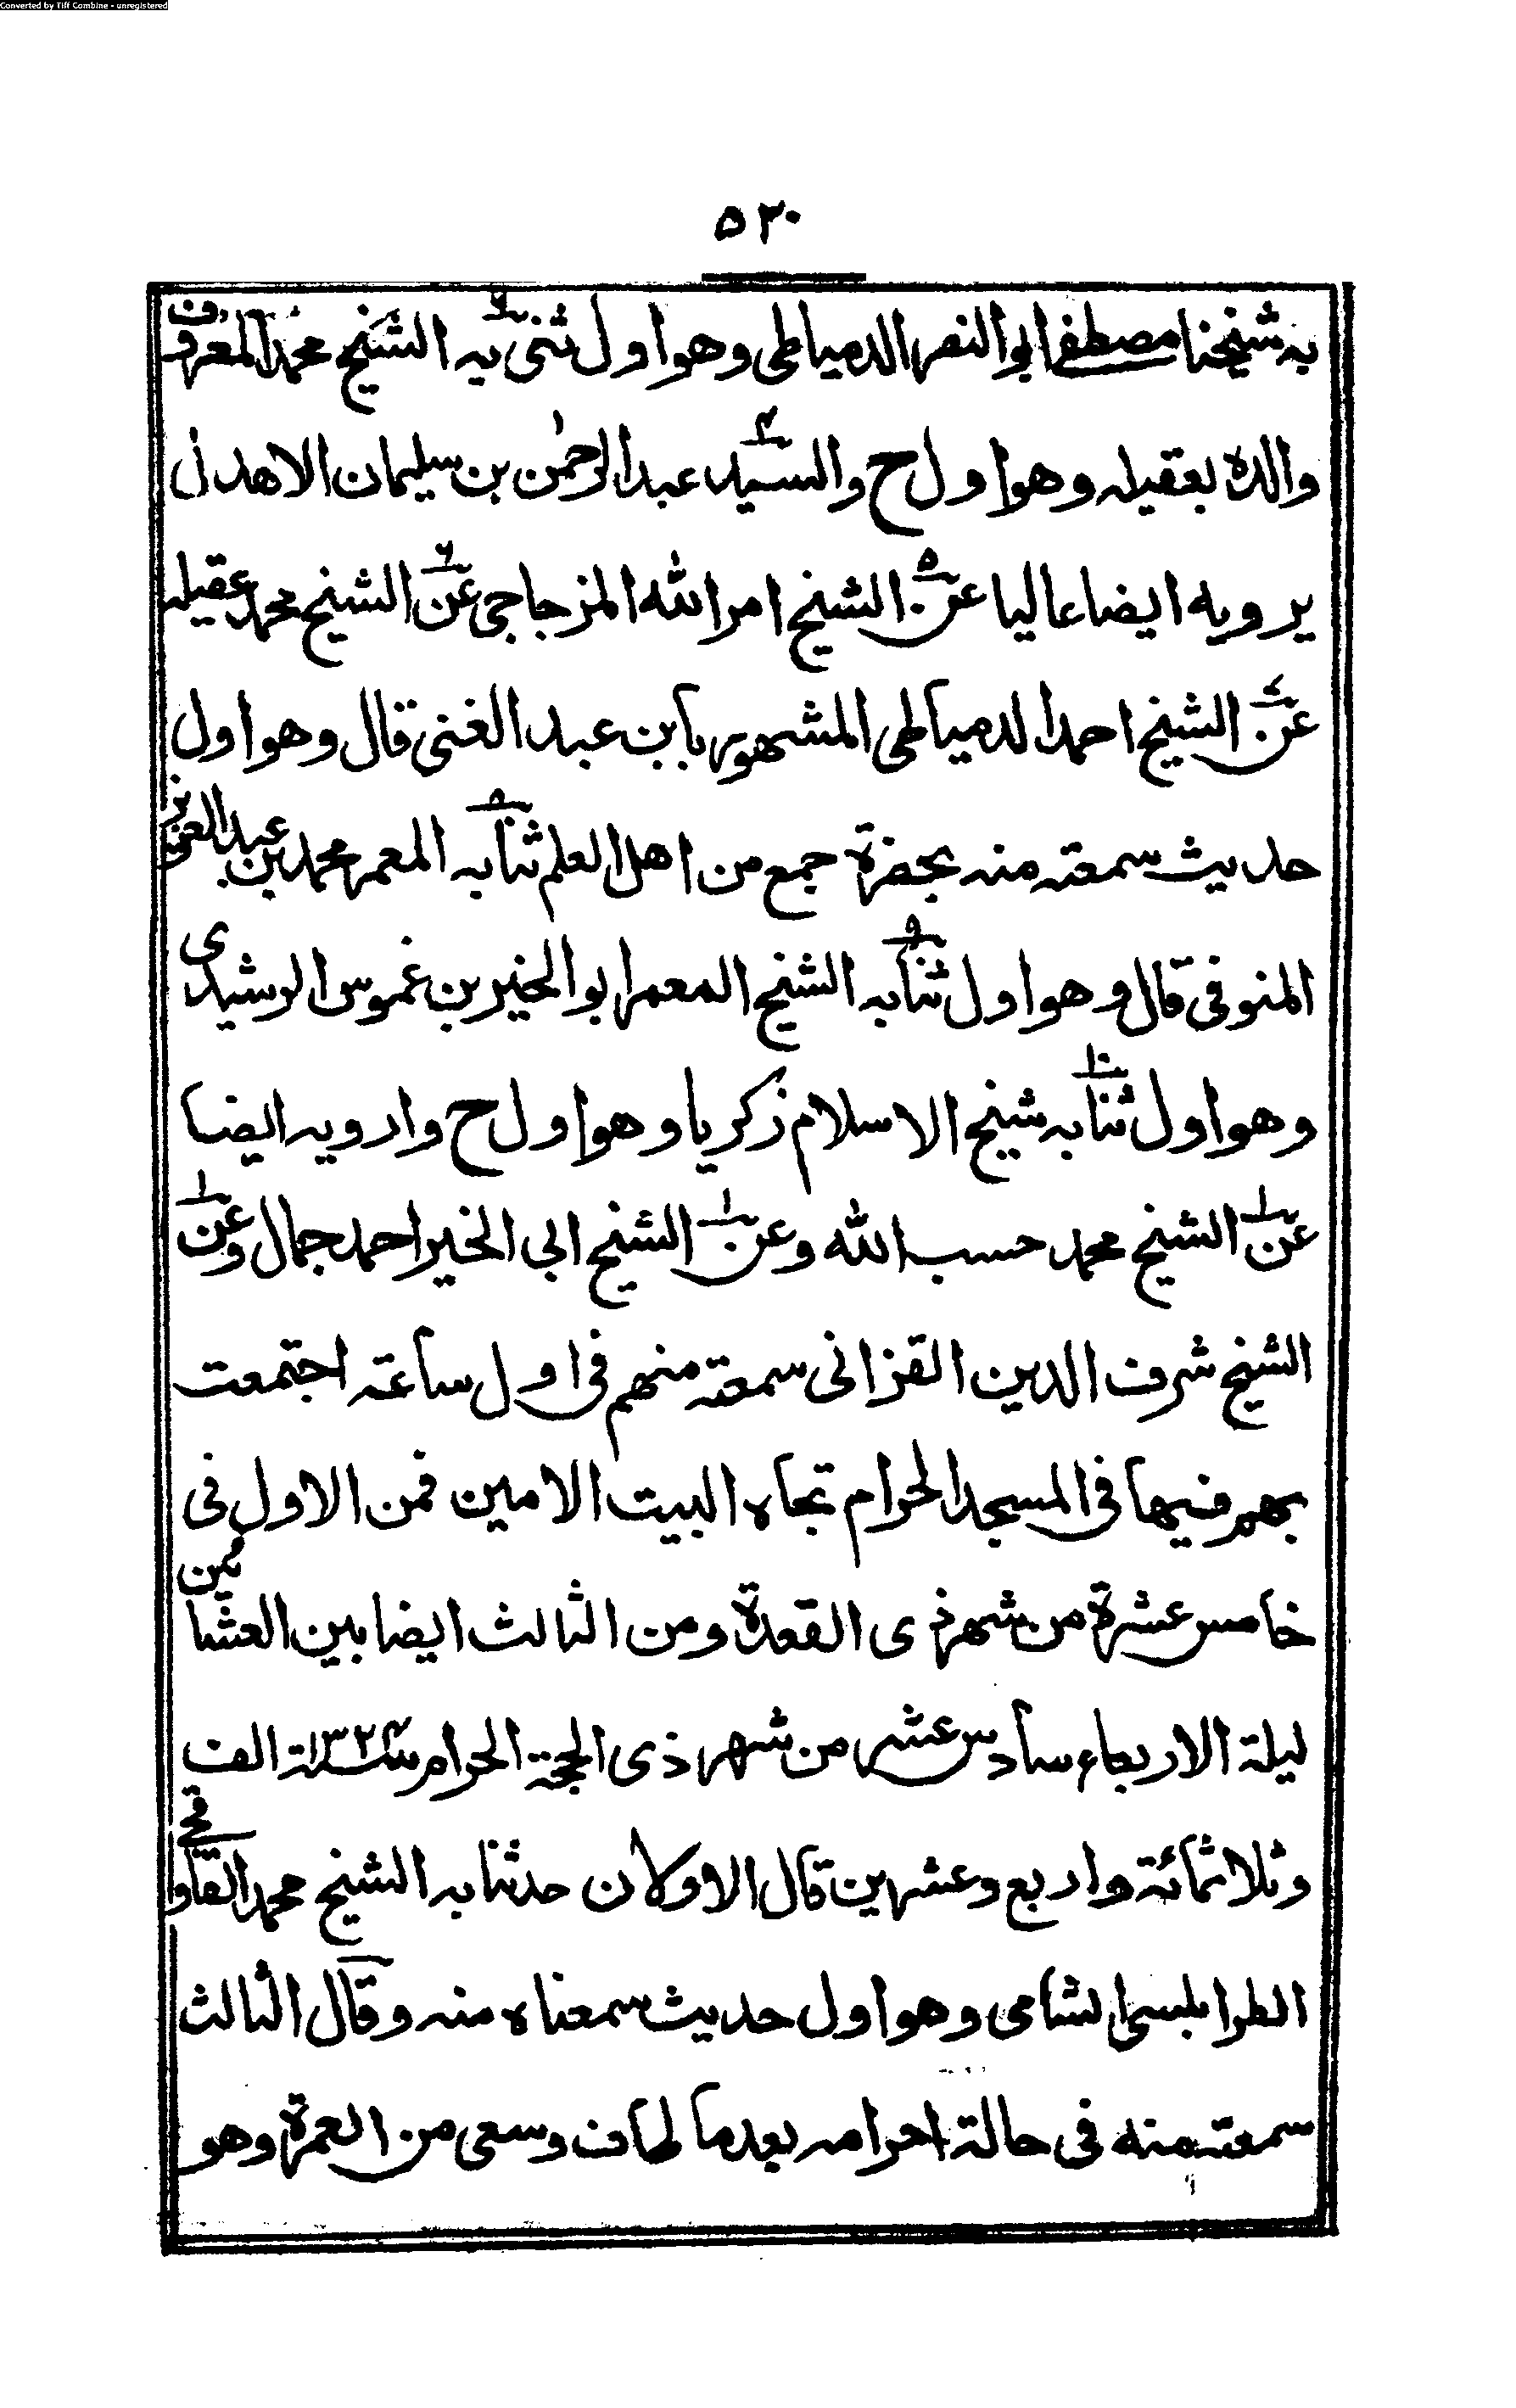 Converted by Tiff Combine - unregistered
٥٣٠
به شيخنا مصطفى ابو النصر الدمياطى وهو اول ثنى به الشيخ محمد المعروف
والده بعقيله وهو اول ح والسيد عبد الرحمٰن بن سليمان الاهدل
يرويه ايضا عاليا عن الشيخ امر الله المزجاجى عن الشيخ محمد عقيله
عن الشيخ احمد الدمياطى المشهور بابن عبد الغنى قال وهو اول
حديث سمعته منه بحضرة جمع من اهل العلم ثنا به المعمر محمد بن عبد العزيز
المنوفى قال وهو اول ثنا به الشيخ المعمر ابو الخير بن غموس الرشيدى
وهو اول ثنا به شيخ الاسلام زكريا وهو اول ح وارويه ايضا
عن الشيخ محمد حسب الله وعن الشيخ ابى الخير احمد جمال وعن
الشيخ شرف الدين القزانى سمعته منهم فى اول ساعة اجتمعت
بهم فيها فى المسجد الحرام تجاه البيت الامين فمن الاول فى
خامس عشرة من شهر ذى القعدة ومن الثالث ايضا بين العشائين
ليلة الاربعاء سادس عشر من شهر ذى الحجة الحرام سنة ١٣٢٤ الف
وثلاثمائة واربع وعشرين قال الاولان حدثنا به الشيخ محمد القاوقجى
الطرابلسى الشامى وهو اول حديث سمعناه منه وقال الثالث
سمعته منه فى حالة احرامه بعد ما طاف وسعى من العمرة وهو